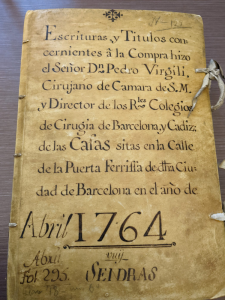 Escrituras y Titulos con-
cernientes â la Compra hizo
el Señor Dn. Pedro Virgili,
Cirujano de Camara de S.M.
y Director de los Rles. Colegios
de Cirugia de Barcelona, y Cadiz,
de las Casas sitas en la Calle
de la Puerta Ferrissa de dha Ciu-
dad de Barcelona en el año de
Abril 1764
Abril
Fol 295.